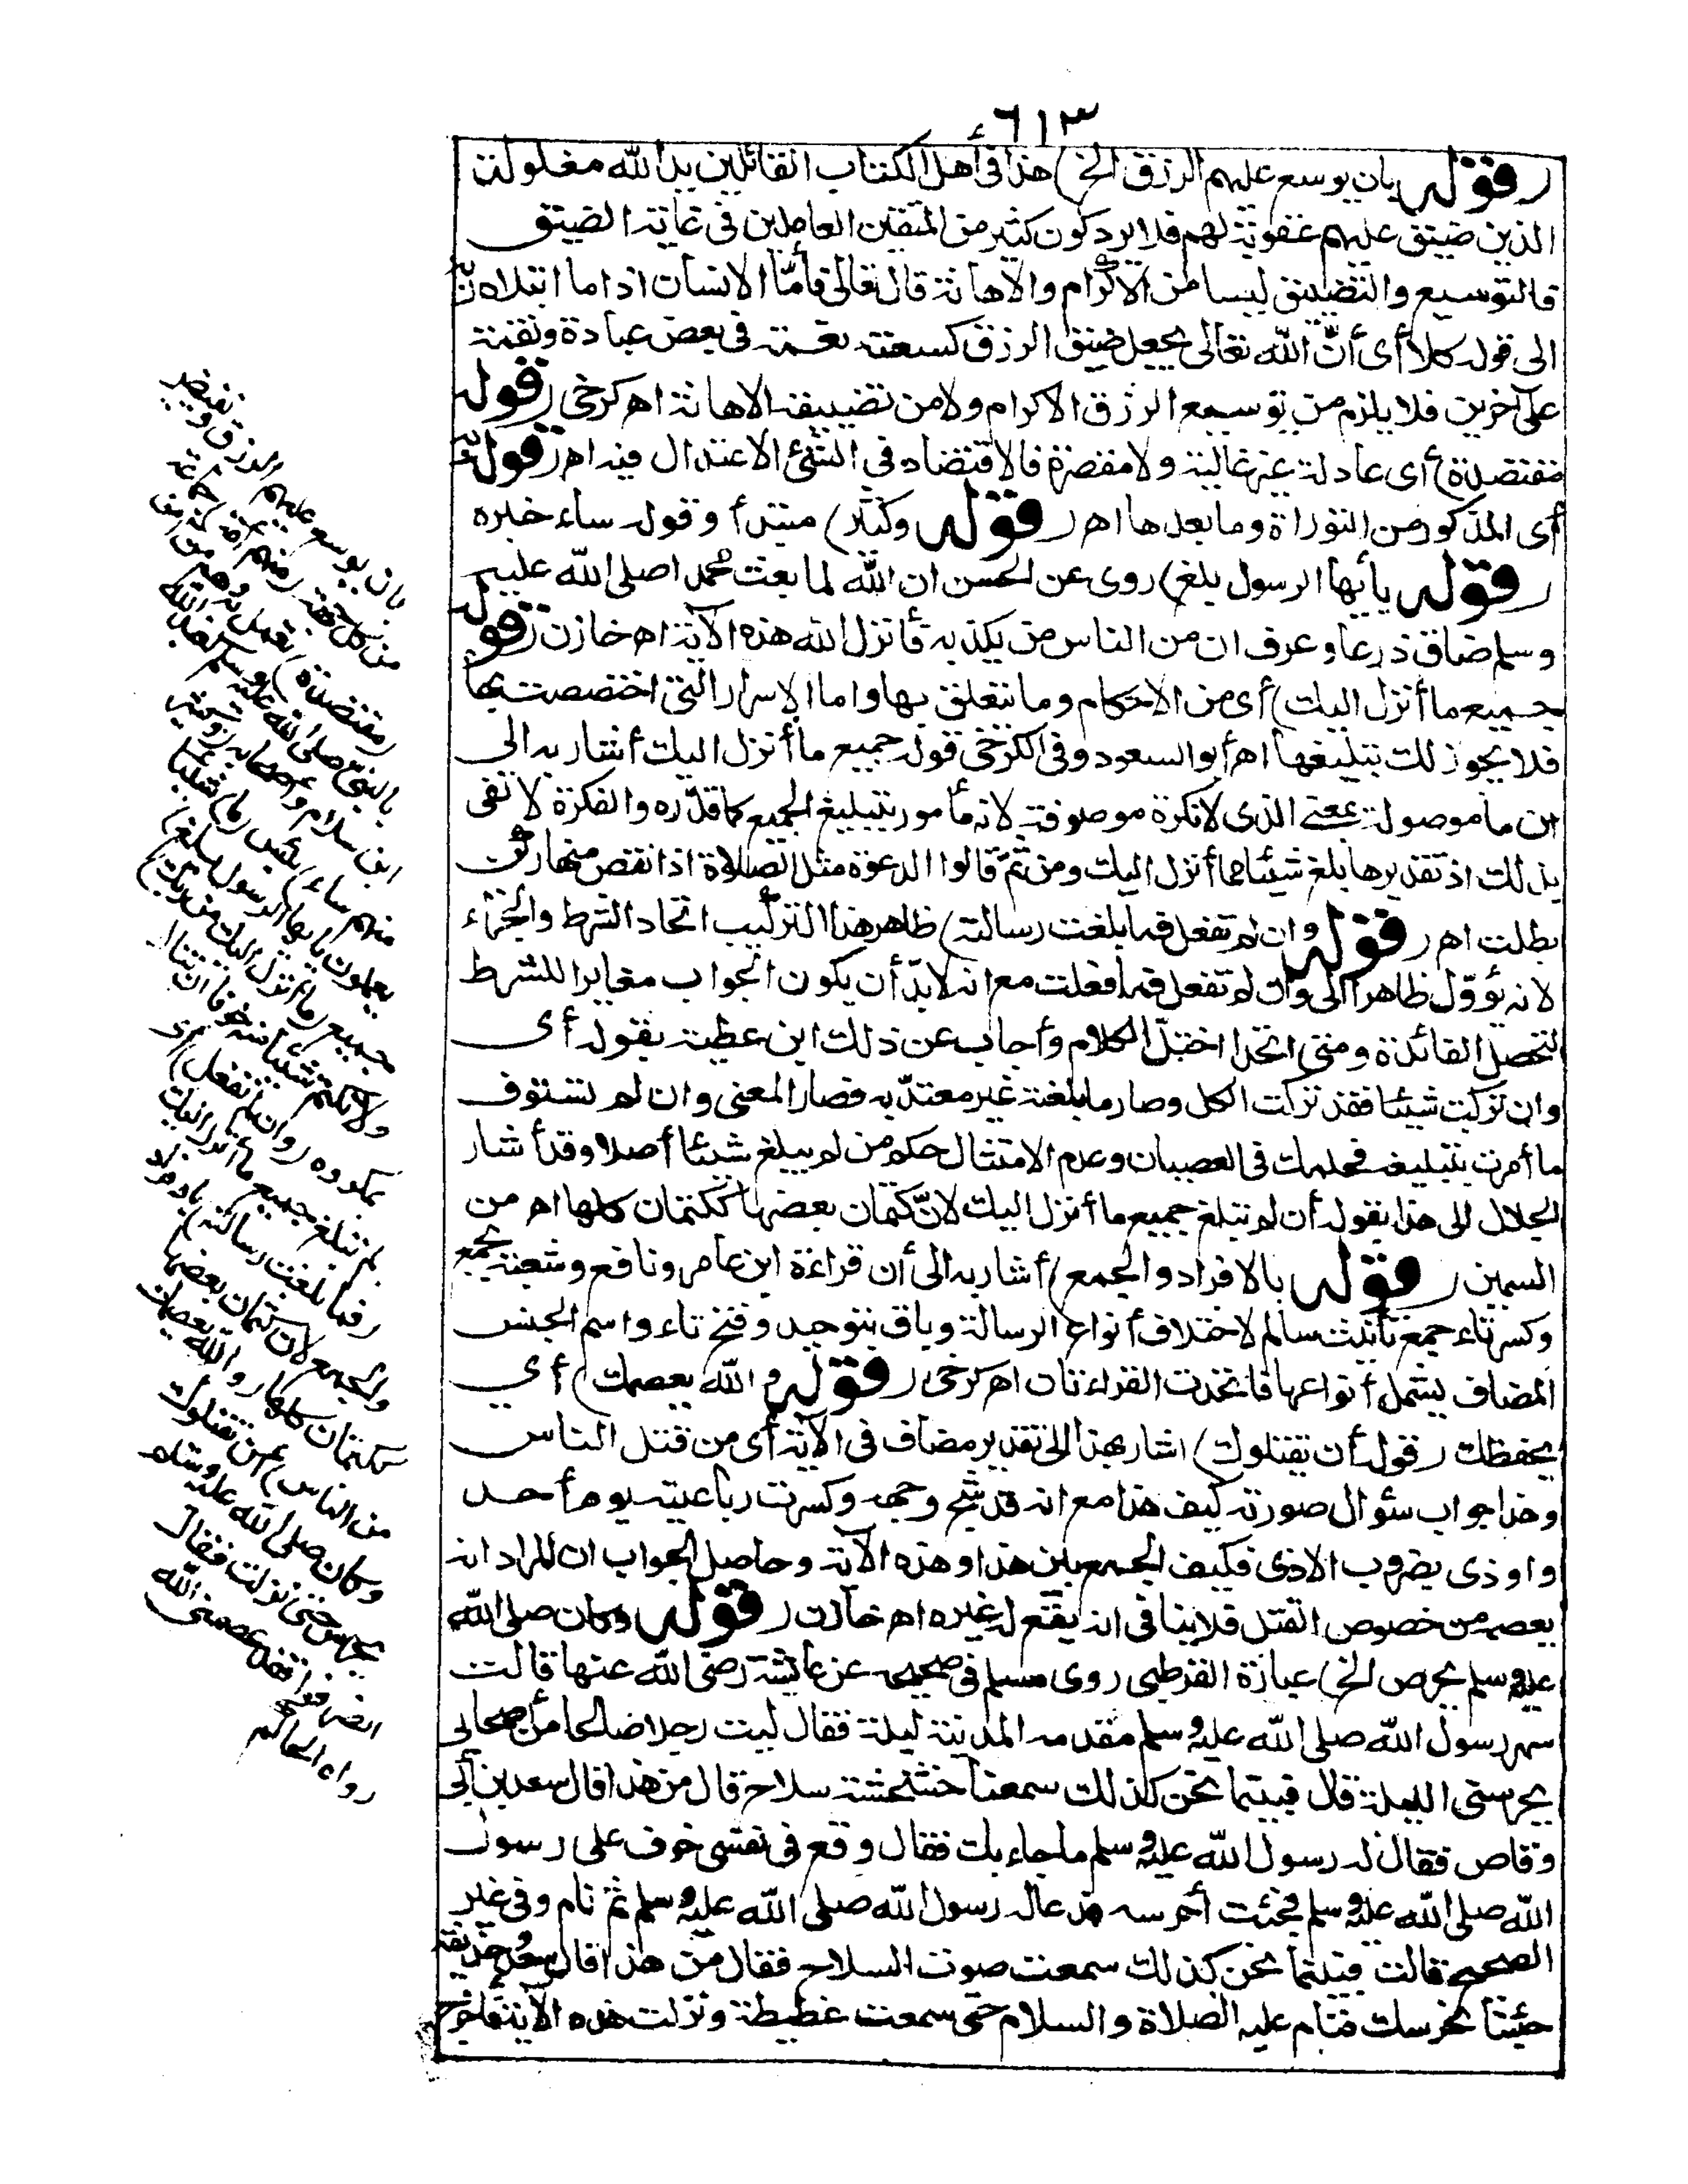 ٦١٣
(قوله بان يوسع عليهم الرزق الخ) هذا فى أهل الكتاب القائلين يد الله مغلولة
الذين ضيق عليهم عقوبة لهم فلا يرد كون كثير من المتقين العاملين فى غاية الضيق
فالتوسيع والتضييق ليسا من الاكرام والاهانة قال تعالى فأمّا الانسان اذا ما ابتلاه ربّه
الى قوله كلا أى أنّ الله تعالى يجعل ضيق الرزق كسعته نعمة فى بعض عباده ونقمة
على آخرين فلا يلزم من توسيع الرزق الاكرام ولا من تضييقه الاهانة اهـ كرخى (قوله
مقتصدة) أى عادلة غير غالية ولا مقصرة فالاقتصاد فى الشئ الاعتدال فيه اهـ (قوله به)
أى المذكور من التوراة وما بعدها اهـ (قوله وكثير) مبتدأ وقوله ساء خبره
(قوله يأيها الرسول بلغ) روى عن الحسن ان الله لما بعث محمدا صلى الله عليه
وسلم ضاق ذرعا وعرف ان من الناس من يكذبه فأنزل الله هذه الآية اهـ خازن (قوله
جميع ما أنزل اليك) أى من الاحكام وما يتعلق بها واما الاسرار التى اختصصت بها
فلا يجوز لك تبليغها اهـ أبو السعود وفى الكرخى قوله جميع ما أنزل اليك أشار به الى
ان ما موصولة بمعنى الذى لا نكرة موصوفة لانه مأمور بتبليغ الجميع كما قدّره والنكرة لا تفى
بذلك اذ تقديرها بلغ شيئا مما أنزل اليك ومن ثمّ قالوا الدعوة مثل الصلاة اذا نقص منها ركن
بطلت اهـ (قوله وان لم تفعل فما بلغت رسالته) ظاهر هذا التركيب اتحاد الشرط والجزاء
لانه يؤوّل ظاهرا الى وان لم تفعل فما فعلت مع انه لابدّ أن يكون الجواب مغايرا للشرط
لتحصل الفائدة ومتى اتحدا اختلّ الكلام وأجاب عن ذلك ابن عطية بقوله أى
وان تركت شيئا فقد تركت الكل وصار ما بلغته غير معتدّ به فصار المعنى وان لم تستوف
ما أمرت بتبليغه فحكمك فى العصيان وعدم الامتثال حكم من لم يبلغ شيئا أصلا وقد أشار
الجلال الى هذا بقوله أن لم تبلغ جميع ما أنزل اليك لانّ كتمان بعضها ككتمان كلها اهـ من
السمين (قوله بالافراد والجمع) أشار به الى أن قراءة ابن عامر ونافع وشعبة بجمع
وكسر تاء جمع تأنيث سالم لاختلاف أنواع الرسالة وباق بتوحيد وفتح تاء واسم الجنس
المضاف يشمل أنواعها فاتحدت القراءتان اهـ كرخى (قوله والله يعصمك) أى
يحفظك (قوله أن يقتلوك) اشار بهذا الى تقدير مضاف فى الآية أى من قتل الناس
وهذا جواب سئوال صورته كيف هذا مع انه قد شج وجهه وكسرت رباعيته يوم أحد
واوذى بضروب الاذى فكيف الجمع بين هذا وهذه الآية وحاصل الجواب ان المراد انه
يعصمه من خصوص القتل فلا ينافى انه يقع له غيره اهـ خازن (قوله وكان صلى الله
عليه وسلم يحرس الخ) عبارة القرطبى روى مسلم فى صحيحه عن عايشة رضى الله عنها قالت
سهر رسول الله صلى الله عليه وسلم مقدمه المدينة ليلة فقال ليت رجلا صالحا من أصحابى
يحرسنى الليلة قالت فبينما نحن كذلك سمعنا خشخشة سلاح قال من هذا قال سعد بن أبى
وقاص فقال له رسول الله صلى الله عليه وسلم ما جاء بك فقال وقع فى نفسى خوف على رسول
الله صلى الله عليه وسلم فجئت أحرسه فدعا له رسول الله صلى الله عليه وسلم ثم نام وفى غير
الصحيح قالت فبينما نحن كذلك سمعت صوت السلاح فقال من هذا قال سعد وحذيفة
جئنا نحرسك فنام عليه الصلاة والسلام حتى سمعت غطيطه ونزلت هذه الآية فاخرج
بان يوسع عليهم الرزق ويفيض
من كل جهة (منهم أمة) جماعة
(مقتصدة) تعمل به وهم من آمن
بالنبى صلى الله عليه وسلم كعبد الله
ابن سلام وأصحابه (وكثير
منهم ساء) بئس (ما) شيئا
يعملون يأيها الرسول بلغ)
جميع (ما أنزل اليك من ربك)
ولا تكتم شيئا منه خوفا ان تنال
بمكروه (وان لم تفعل) أى
لم تبلغ جميع ما أنزل اليك
(فما بلغت رسالته) بالافراد
والجمع لان كتمان بعضها
ككتمان كلها (والله يعصمك
من الناس) أن يقتلوك
وكان صلى الله عليه وسلم
يحرس حتى نزلت فقال
انصرفوا فقد عصمنى الله
رواه الحاكم